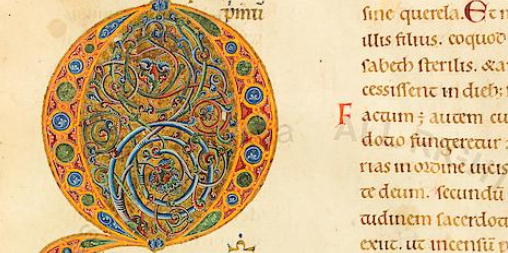 Q
sine querela. Et n
illis filius. eoquod
sabeth sterilis. &a
cessissent in dieb;
Factum ÷ autem cu
dotio fungeretur
rias in ordine uicis
te deum. secundū
tudinem sacerdot
exiit. ut incensū p